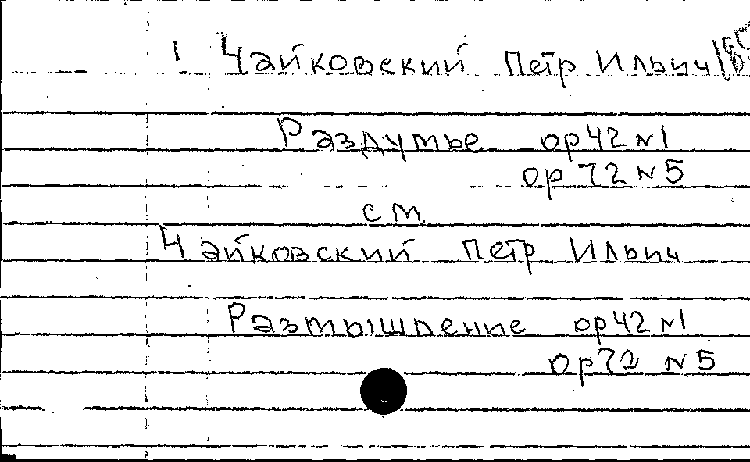 1 Чайковский Петр Ильич
Раздумье op 42 N 1
op 72 N 5
см.
Чайковский Петр Ильич
Размышление op 42 N 1
op 72 N 5